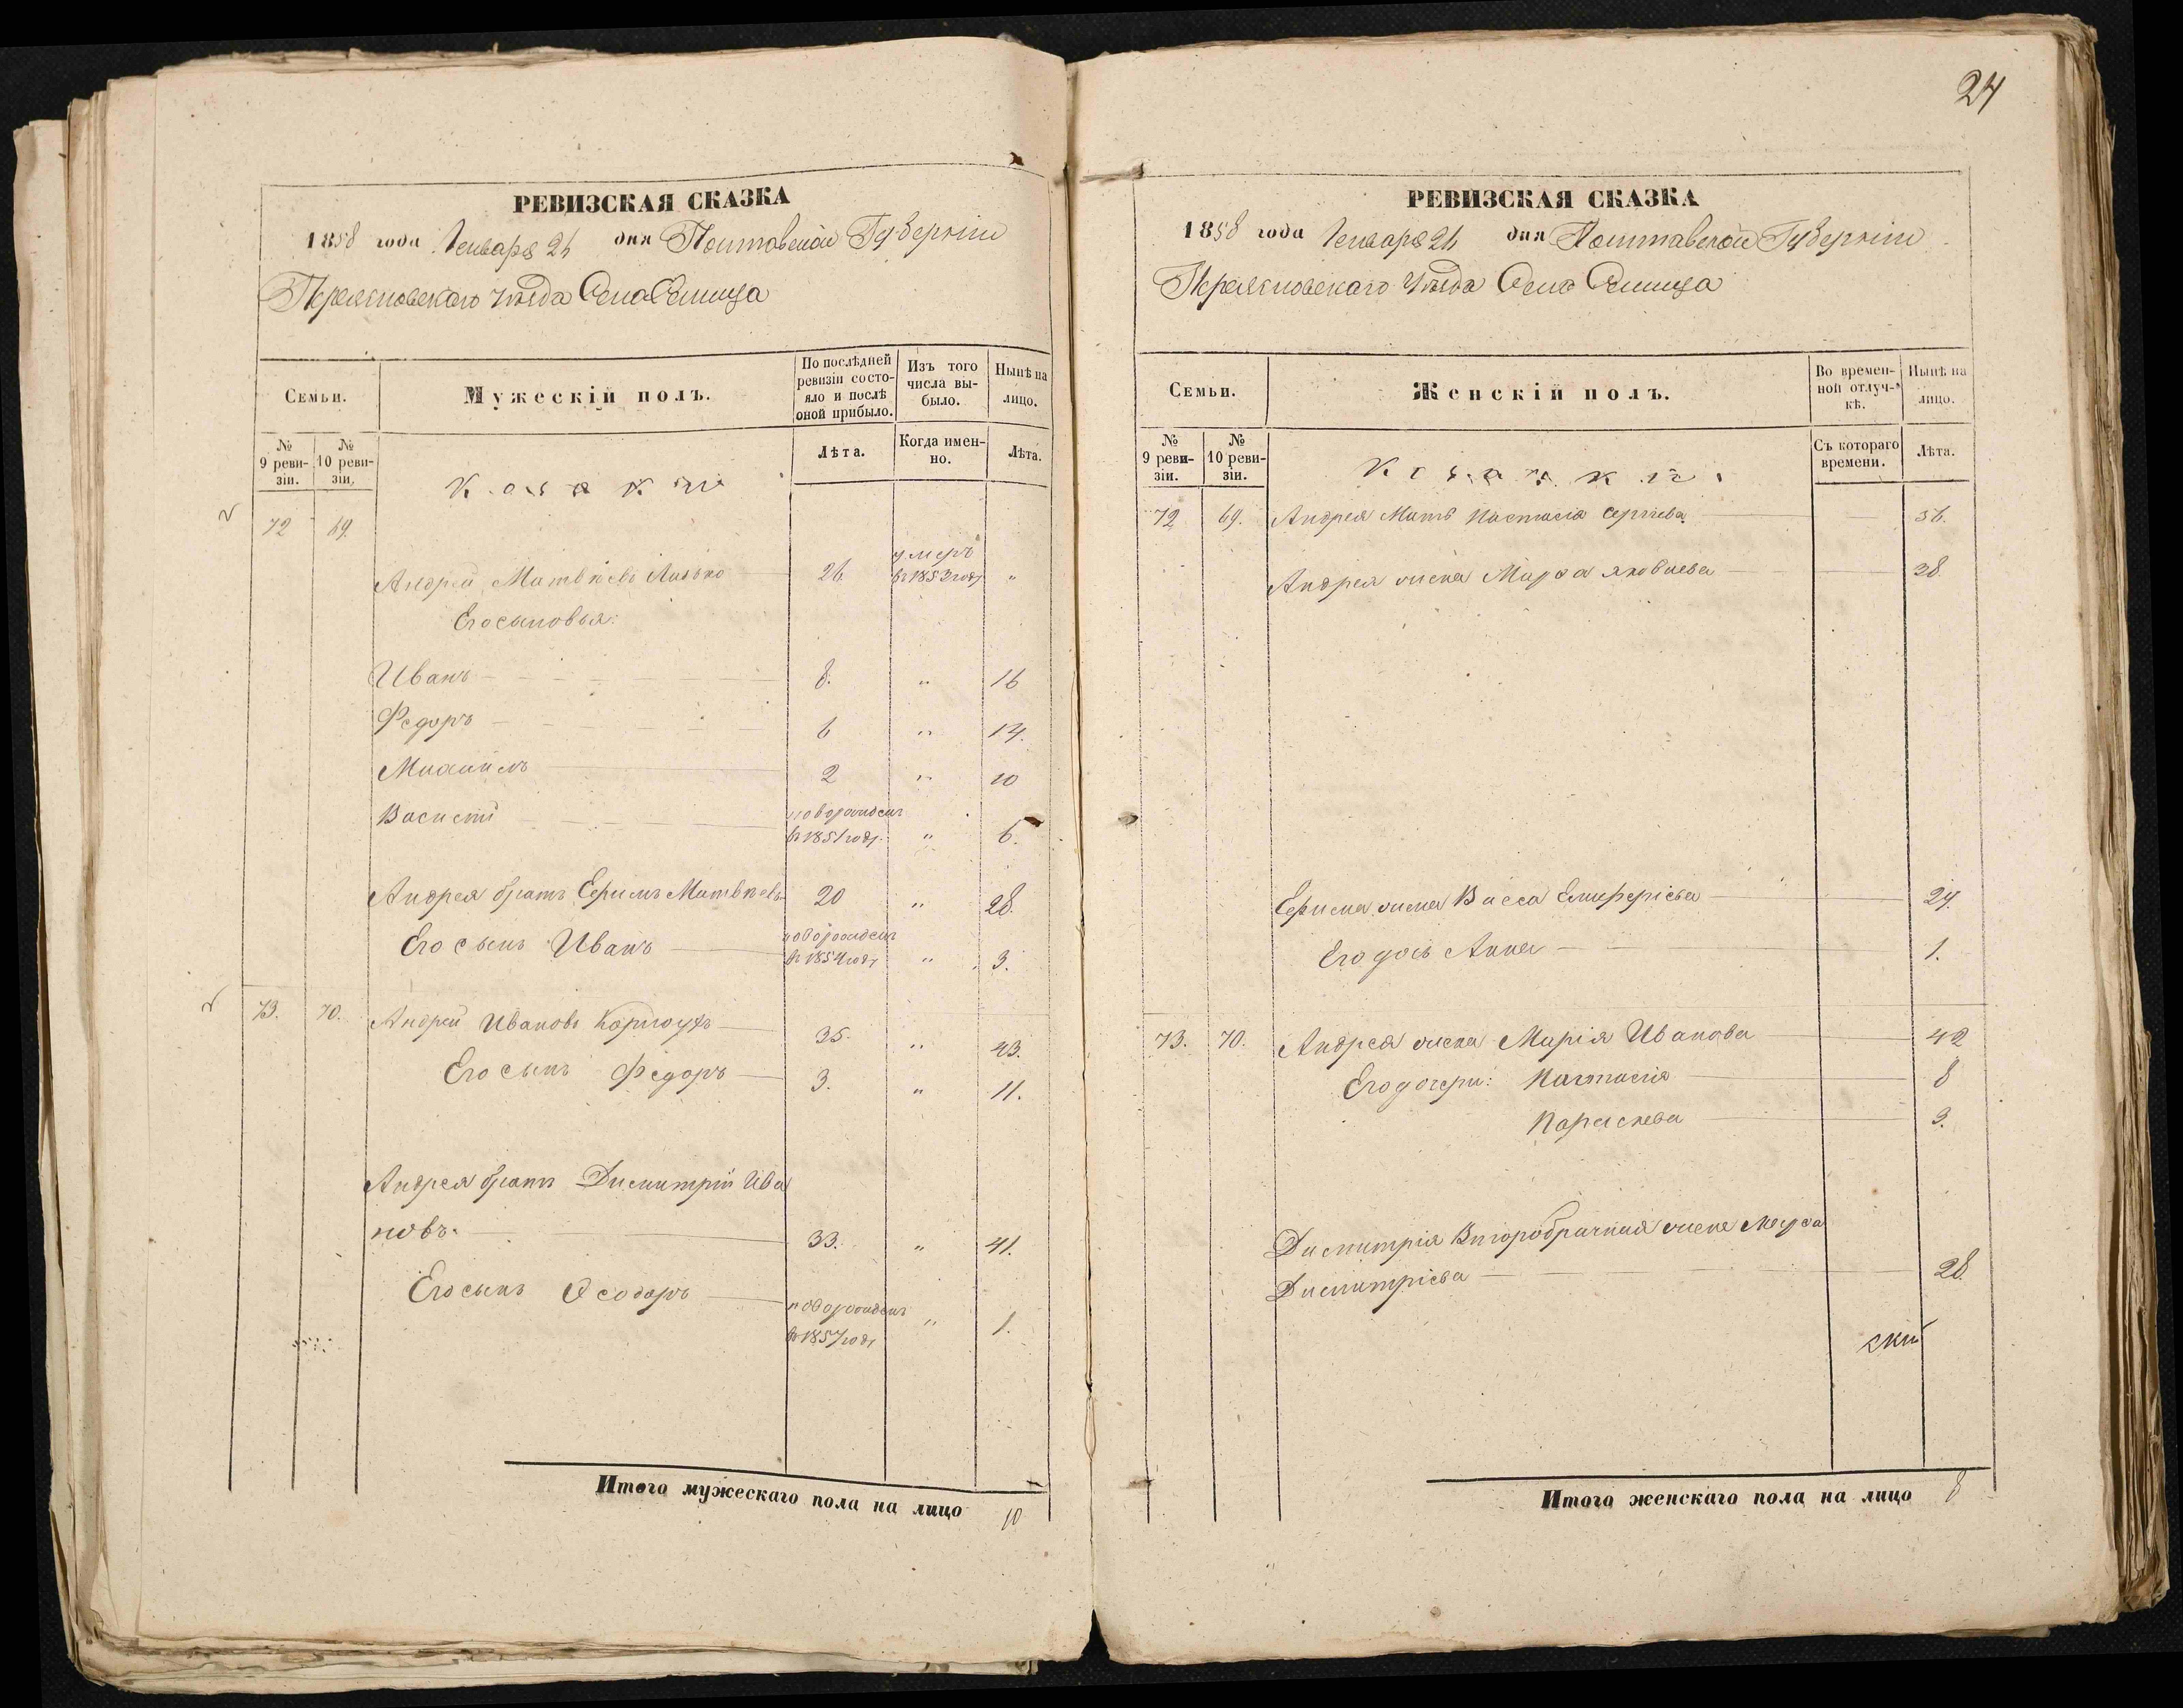 РЕВИЗСКАЯ СКАЗКА
1858 года Генваря 21 дня Полтавской Губерніи
Переяславскаго уѣзда Села
Семьи.
Мужескій полъ.
По послѣдней ревизіи состояло и послѣ оной прибыло.
Изъ того числа выбыло.
Нынѣ на лицо.
№ 9 ревизіи.
№ 10 ревизіи.
Козаки
Лѣта.
Когда именно.
Лѣта.
72 69.
Андрей Матвѣевъ 26 умеръ въ 1853 году "
Его сыновья:
Иванъ 8. " 16
Федоръ 6 " 14.
Михаилъ 2 " 10
Василій новорожденъ въ 1851 году. " 6.
Андрея братъ Ефимъ Матвѣевъ 20 " 28.
Его сынъ Иванъ новорожденъ въ 1854 году " 3.
73. 70. Андрей Ивановъ 35. " 43.
Его сынъ Федоръ 3. " 11.
Андрея братъ Димитрій Ива
новъ. 33. " 41.
Его сынъ Ѳеодоръ новорожденъ въ 1857 году " 1.
Итого мужескаго пола на лицо 10
24
РЕВИЗСКАЯ СКАЗКА
1858 года Генваря 21 дня Полтавской Губерніи
Переяславскаго Уѣзда Села
Семьи.
Женскій полъ.
Во временной отлучкѣ.
Нынѣ на лицо.
№ 9 ревизіи.
№ 10 ревизіи.
Козачки.
Съ котораго времени.
Лѣта.
72 69. Андрея Мать Настасія Сергіева 56.
Андрея жена Марѳа Яковлева 38.
Ефима жена Васса Елиферіева 24.
Его дочь Анна 1.
73. 70. Андрея жена Марія Иванова 42
Его дочери: Настасія 8
Параскева 3.
Димитрія Второбрачная жена Марѳа
Димитріева 28.
скій
Итого женскаго пола на лицо 8